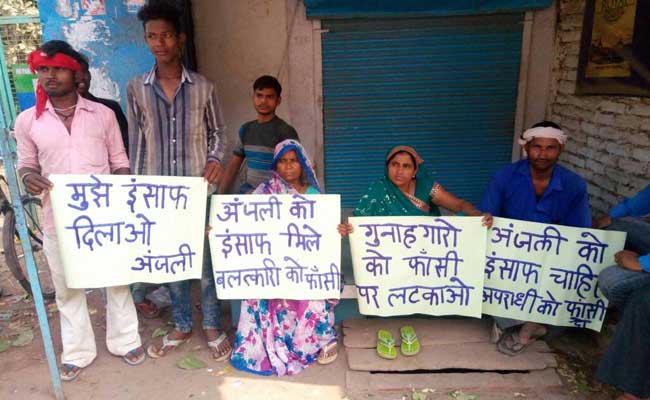 मुझे इंसाफ
दिलाओ
अंजली
अंजली को
इंसाफ मिले
बलत्कारी को फाँसी
गुनाहगारो
को फाँसी
पर लटकाओ
अंजली को
इंसाफ चाहिए
अपराधी को फाँसी